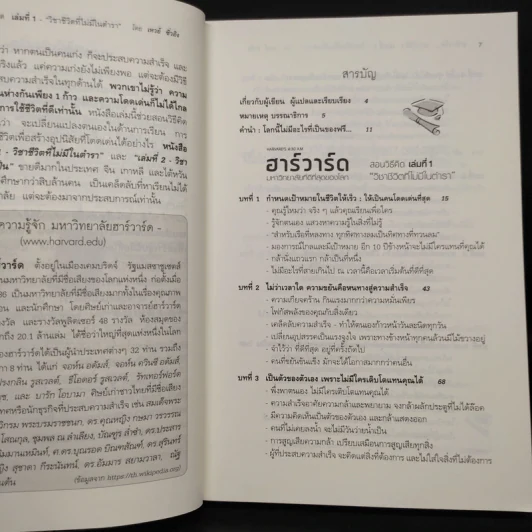 เล่มที่ 1 - "วิชาชีวิตที่ไม่มีในตำรา" โดย
ว่า หากตนเป็นคนเก่ง ก็จะประสบความสำเร็จ และ
จริงแล้ว แค่ความเก่งยังไม่เพียงพอ แต่จะต้องมีวิธี
ความสำเร็จในทุกด้านได้ พวกเขาไม่รู้ว่า ความ
ห่างกันเพียง 1 ก้าว และความโดดเด่นก็ไม่ได้ไกล
การใช้ชีวิตที่ดีเท่านั้น หนังสือเล่มนี้ช่วยสอนวิธีคิด
ว่า จะเปลี่ยนแปลงตนเองในด้านการเรียน การ
ชีวิตเพื่อสร้างอุปนิสัยที่โดดเด่นได้อย่างไร หนังสือ
1 - วิชาชีวิตที่ไม่มีในตำรา" และ "เล่มที่ 2 - วิชา
ขายดีมากในประเทศ จีน เกาหลี และไต้หวัน
ศึกษามากว่าสิบล้านคน เป็นเคล็ดลับที่หาเรียนไม่ได้
ลัย แต่จะต้องมาจากประสบการณ์เท่านั้น
ความรู้จัก มหาวิทยาลัยฮาร์วาร์ด -
(www.harvard.edu)
ร์วาร์ด ตั้งอยู่ในเมืองเคมบริดจ์ รัฐแมสซาชูเซตส์
นมหาวิทยาลัยที่มีชื่อเสียงของโลกแห่งหนึ่ง ก่อตั้งเมื่อ
36 เป็นมหาวิทยาลัยที่มีชื่อเสียงมากทั้งในเรื่องคุณภาพ
และนักศึกษา โดยศิษย์เก่าและอาจารย์ฮาร์วาร์ด
งวัล และรางวัลพูลิตเซอร์ 48 รางวัล ห้องสมุดของ
ถึง 20.1 ล้านเล่ม ได้ชื่อว่าใหญ่ที่สุดแห่งหนึ่งในโลก
องฮาร์วาร์ดได้เป็นผู้นำประเทศต่างๆ 32 ท่าน รวมถึง
8 ท่าน ได้แก่ จอห์น อดัมส์, จอห์น ควินซี อดัมส์,
แฟรงกลิน รูสเวลต์, ธีโอดอร์ รูสเวลต์, รัทเทอร์ฟอร์ด
และ บารัก โอบามา ศิษย์เก่าชาวไทยที่มีชื่อเสียง
(ข้อมูลจาก https://th.wikipedia.org)
7
สารบัญ
เกี่ยวกับผู้เขียน ผู้แปลและเรียบเรียง 4
หมายเหตุ บรรณาธิการ 5
คำนำ : โลกนี้ไม่มีอะไรที่เป็นของฟรี... 11
HARVARD, 4:30 A.M.
ฮาร์วาร์ด สอนวิธีคิด เล่มที่ 1
มหาวิทยาลัยที่ดีที่สุดของโลก "วิชาชีวิตที่ไม่มีในตำรา"
บทที่ 1 กำหนดเป้าหมายในชีวิตให้เร็ว : ให้เป็นคนโดดเด่นที่สุด 15
- คุณรู้ไหมว่า จริง ๆ แล้วคุณเรียนเพื่อใคร
- รู้จักตนเอง แสวงหาความรู้ในสิ่งที่ไม่รู้
- "สำหรับเรือที่หลงทาง ทุกทิศทางลมเป็นทิศทางที่ทวนลม"
- มองการณ์ไกลและมีเป้าหมาย อีก 10 ปีข้างหน้าจะไม่มีใครแทนที่คุณได้
- กล้านั่งแถวแรก กล้าเป็นที่หนึ่ง
- ไม่มีอะไรที่สายเกินไป ณ เวลานี้คือเวลาเริ่มต้นที่ดีที่สุด
บทที่ 2 ไม่ว่าเวลาใด ความขยันคือหนทางสู่ความสำเร็จ 43
- ความเกียจคร้าน กินแรงมากกว่าความหมั่นเพียร
- โฟกัสพลังของคุณกับสิ่งเดียว
- เคล็ดลับความสำเร็จ - ทำให้ตนเองก้าวหน้าวันละนิดทุกวัน
- เปลี่ยนอุปสรรคเป็นแรงจูงใจ เพราะทางข้างหน้าทุกคนล้วนมีไม้ขวางอยู่
- จำไว้ว่า ที่ดีที่สุด อยู่ที่ครั้งถัดไป
- คนที่ขยันขันแข็ง มักจะได้โอกาสมากกว่าคนอื่น
บทที่ 3 เป็นตัวของตัวเอง เพราะไม่มีใครเติบโตแทนคุณได้ 68
- พึ่งพาตนเอง ไม่มีใครเติบโตแทนคุณได้
- ความสำเร็จอาศัยความกล้าและพยายาม จงกล้าผลักประตูที่ไม่ได้ล็อค
- มีความคิดเห็นเป็นของตัวเอง และกล้าแสดงออก
- คนที่ไม่เคยลงน้ำ จะไม่มีวันว่ายน้ำเป็น
- การสูญเสียความกล้า เปรียบเสมือนการสูญเสียทุกสิ่ง
- ผู้ที่ประสบความสำเร็จ จะคิดแต่สิ่งที่ต้องการ และไม่ใส่ใจสิ่งที่ไม่ต้องการ